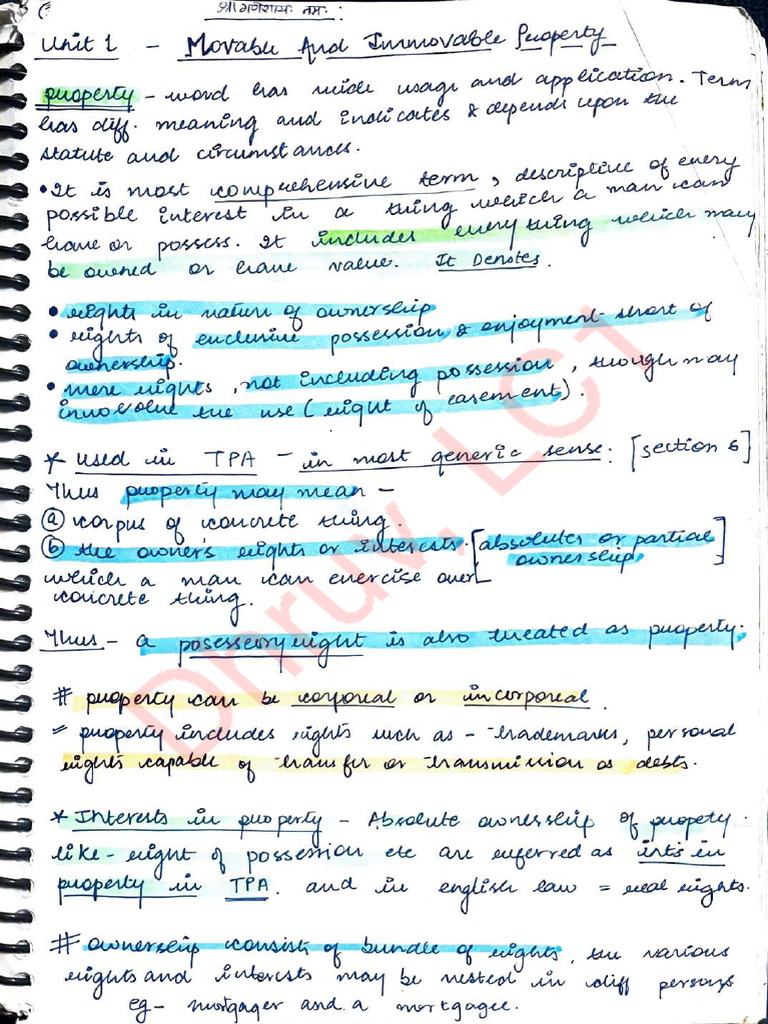 श्री गणेशायः नमः :
Unit 1 - Movable And Immovable Property
property - word has wide usage and application. Term
has diff. meaning and indicates & depends upon the
statute and circumstances.
• It is most comprehensive term, descriptive of every
possible interest in a thing which a man can
have or possess. It includes every thing which may
be owned or have value. It Denotes.
• rights in nature of ownership
• rights of exclusive possession & enjoyment short of
ownership.
• mere rights, not including possession, though may
involve the use (right of easement).
* Used in TPA - in most generic sense: [section 6]
Thus property may mean -
(a) corpus of concrete thing.
(b) the owner's rights or interests. [absolutes or partial
ownership]
which a man can exercise over
concrete thing.
Thus - a posessory right is also treated as property.
# property can be corporeal or incorporeal.
= property includes rights such as - trademarks, personal
rights capable of transfer or transmission as debts.
* Interests in property - Absolute ownership of propety.
like - right of possession etc are referred as ints in
property in TPA. and in english law = real rights.
# ownership consists of bundle of rights, the various
rights and interests may be vested in diff persons
eg - mortgager and a mortgagee.
Dhruv. LC1